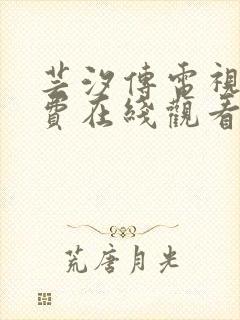 芸汐傳電視
費在綫觀看
荒唐月光